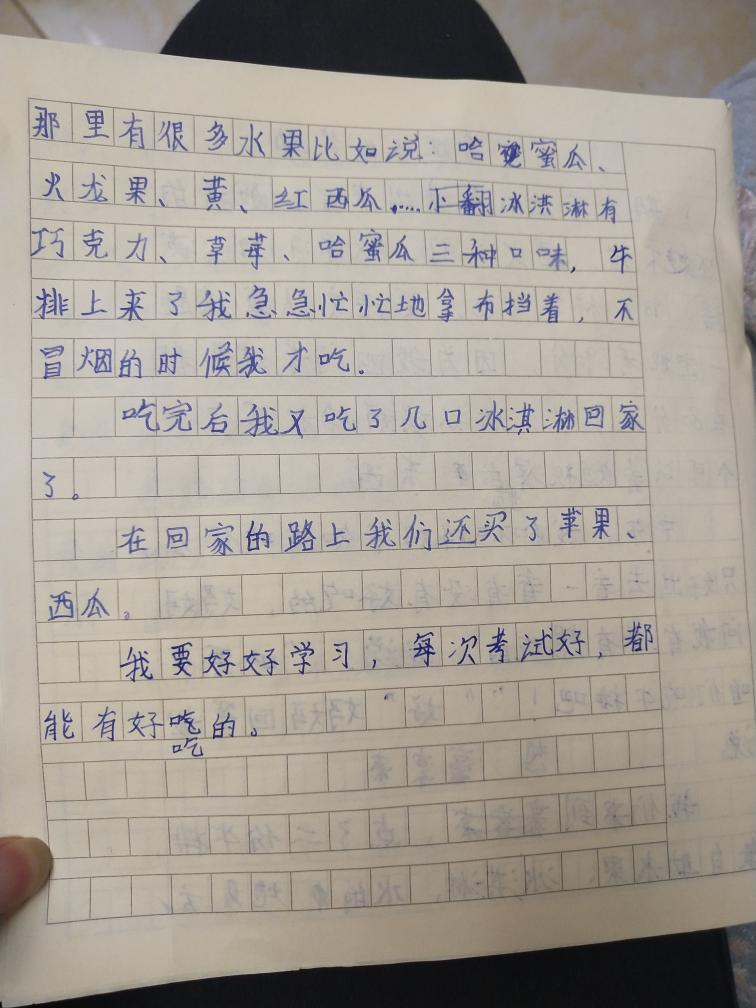 那里有很多水果比如说：哈蜜瓜、
火龙果、黄、红西瓜……不翻冰洪淋有
巧克力、草莓、哈蜜瓜三种口味，牛
排上来了我急急忙忙地拿布挡着，不
冒烟的时候我才吃.
吃完后我又吃了几口冰淇淋回家
了。
在回家的路上我们还买了苹果、
西瓜。
我要好好学习，每次考试好，都
能有好吃的。
吃